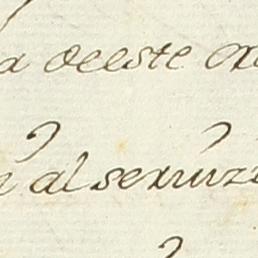 a deeste
al seruizi